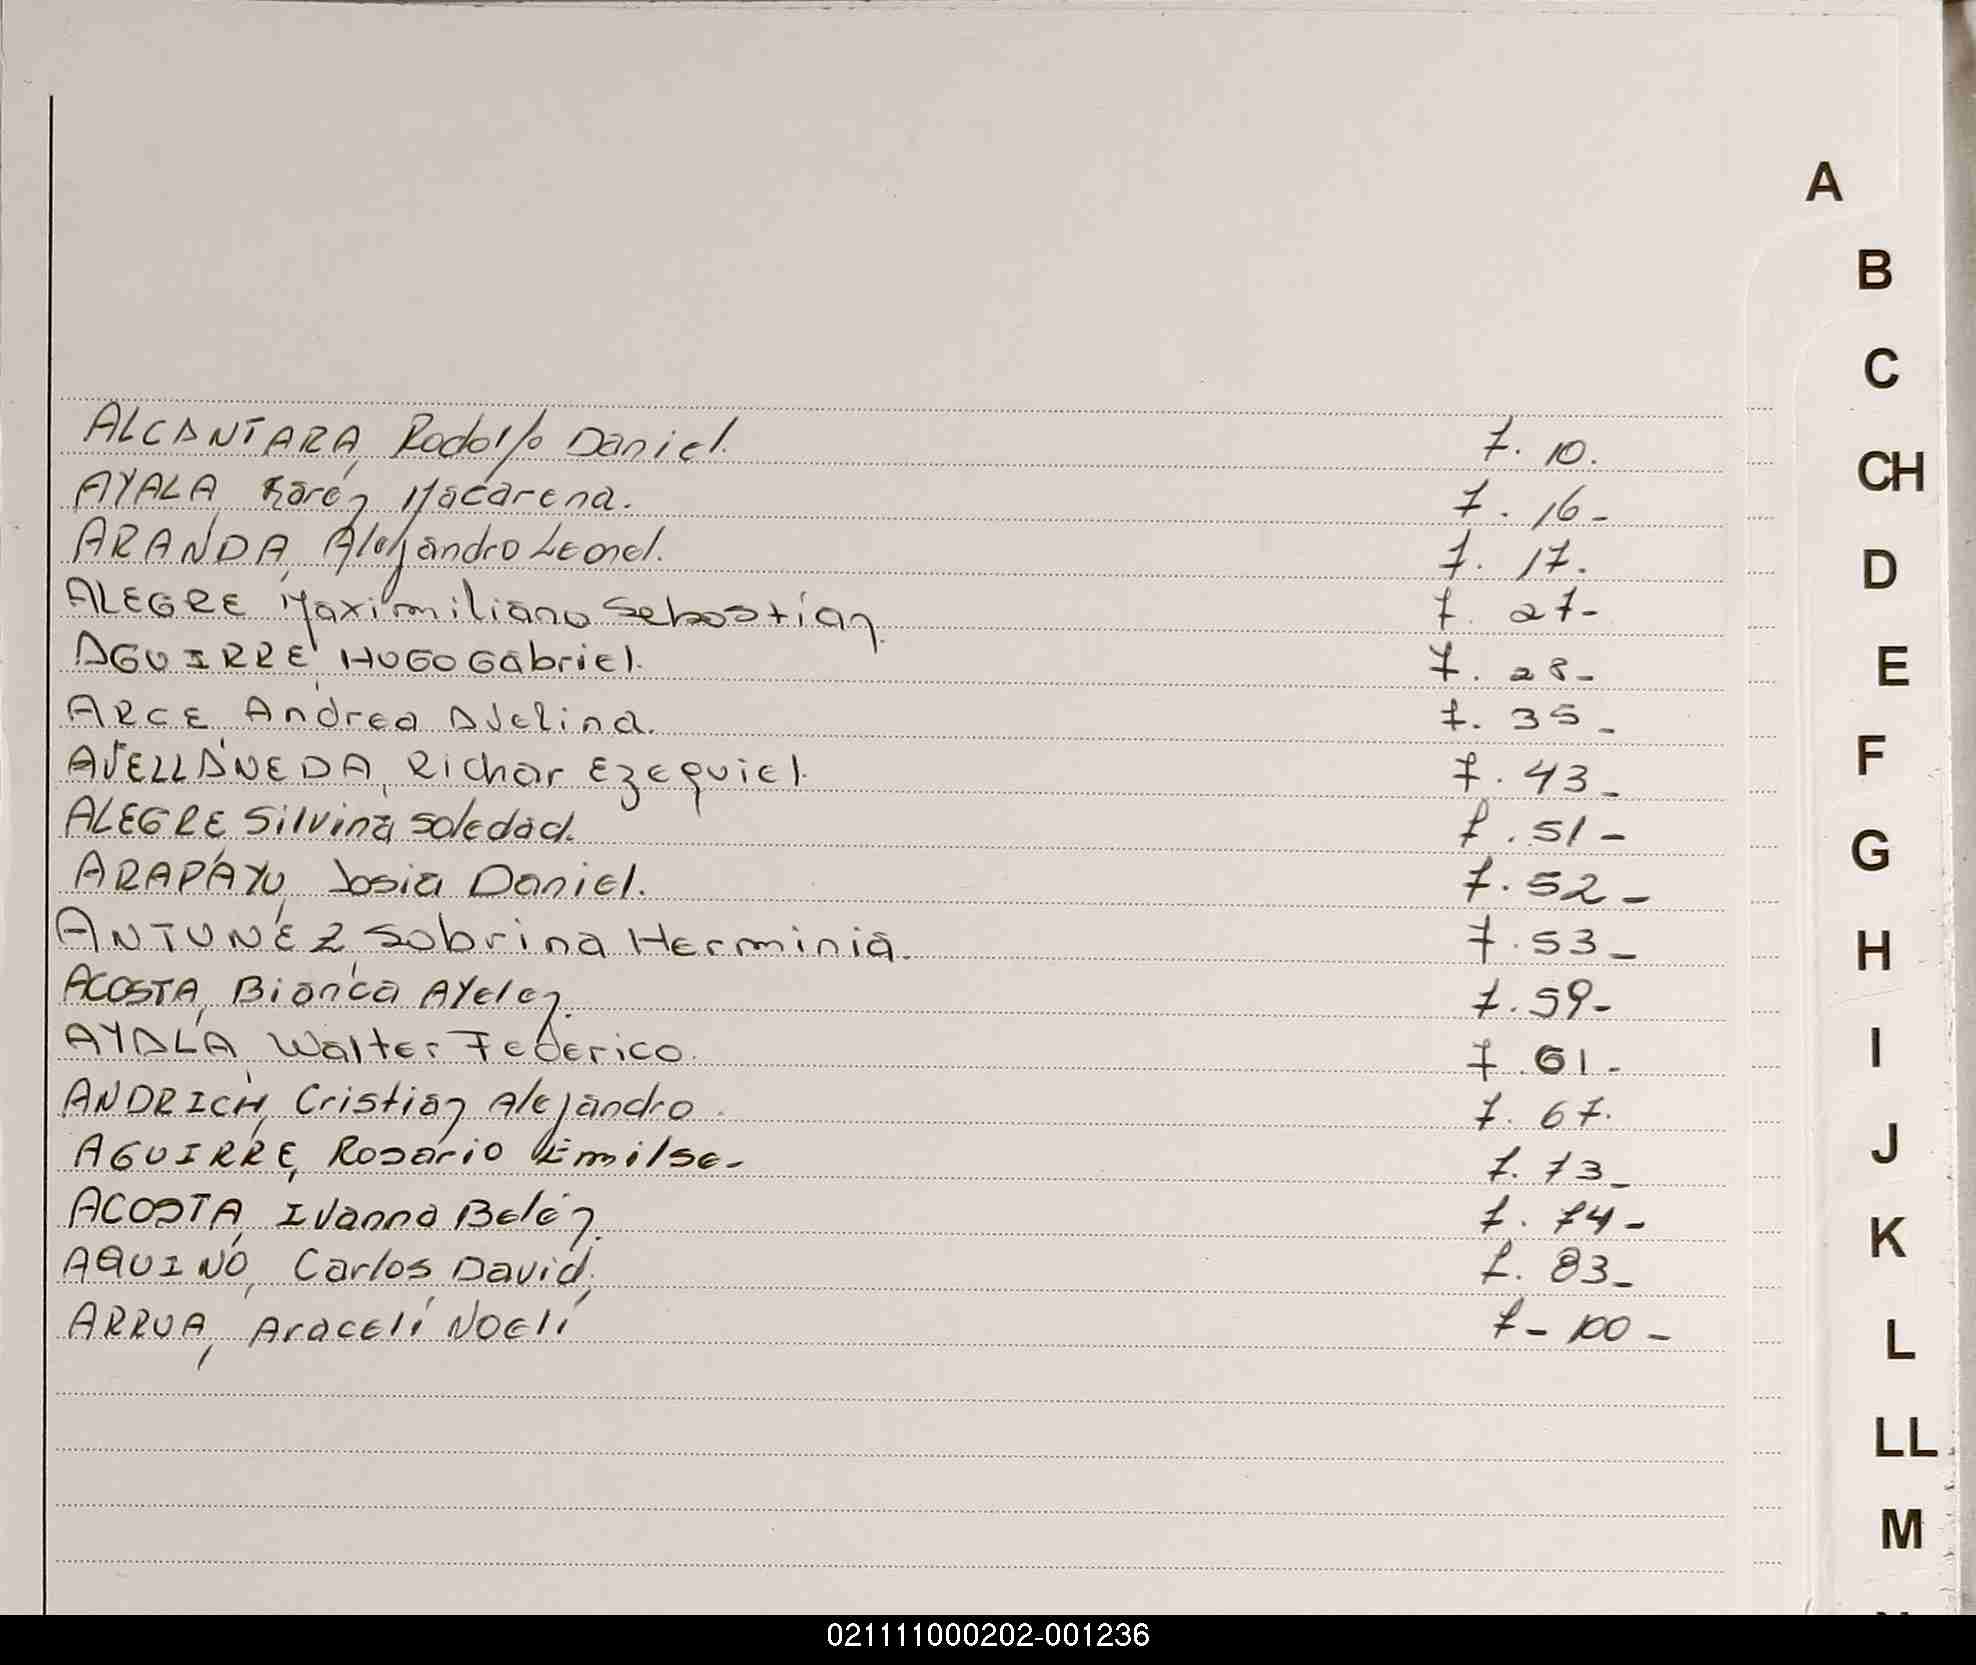 A
B
C
ALCANTARA, Rodolfo Daniel. f. 10.
CH
AYALA, Karen Macarena. f. 16-
ARANDA, Alejandro Leonel. f. 17.
D
ALEGRE, Maximiliano Sebastian. f. 27-
AGUIRRE, HUGO Gabriel. f. 28-
E
ARCE Andrea Avelina. f. 35-
AVELLANEDA, Richar Ezequiel. f. 43-
F
ALEGRE, Silvina Soledad. f. 51-
G
ARAPAYU, Josia Daniel. f. 52-
ANTUNEZ, Sabrina Herminia. f. 53-
H
ACOSTA, Bianca Ayelen. f. 59-
AYALA, Walter Federico. f. 61-
I
ANDRICH, Cristian Alejandro. f. 67.
J
AGUIRRE, Rosario Emilse- f. 73-
ACOSTA, Ivanna Belén. f. 74-
K
AQUINO, Carlos David, f. 83-
ARRUA, Araceli Noeli f- 100-
L
LL
M
021111000202-001236